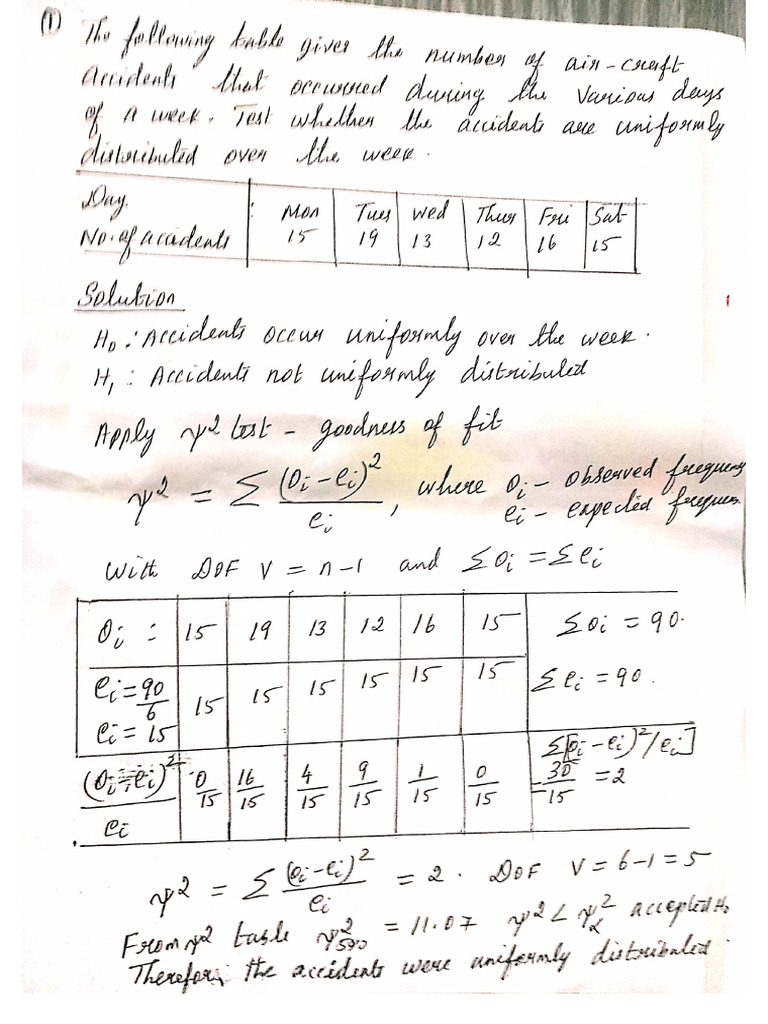 (1) The following table gives the number of air-craft
accidents that occurred during the various days
of a week. Test whether the accidents are uniformly
distributed over the week.
Day : Mon Tues Wed Thur Fri Sat
No. of accidents 15 19 13 12 16 15
Solution
H₀ : Accidents occur uniformly over the week.
H₁ : Accidents not uniformly distributed
Apply ψ² test - goodness of fit
ψ² = Σ (Oi - ei)² / ei , where Oi - observed frequency
ei - expected frequen
With DOF V = n-1 and ΣOi = Σei
Oi : 15 19 13 12 16 15 ΣOi = 90.
ei = 90/6 15 15 15 15 15 15 Σei = 90.
ei = 15
(Oi - ei)² / ei 0/15 16/15 4/15 9/15 1/15 0/15 Σ[(Oi - ei)²/ei]
= 30/15 = 2
ψ² = Σ (Oi - ei)² / ei = 2. DOF V = 6-1 = 5
From ψ² table ψ²5% = 11.07 ψ² < ψ²α accepted H₀
Therefor, the accidents were uniformly distributed.